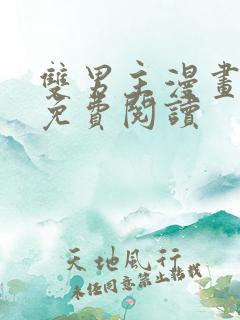 雙男主漫畫
免費閱讀
天地風行
未經同意禁止轉載